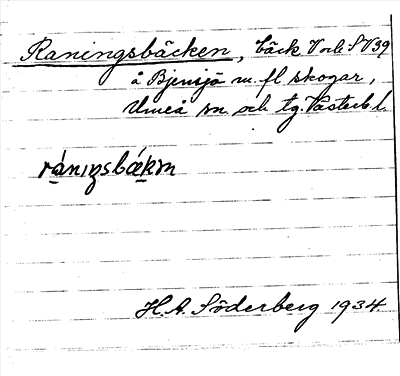 Raningsbäcken, bäck V och SV 39
å Bjensjö m. fl skogar,
Umeå sn. och tg. Västerb. l.
ránıŋsbǽkm
H. A. Söderberg 1934.